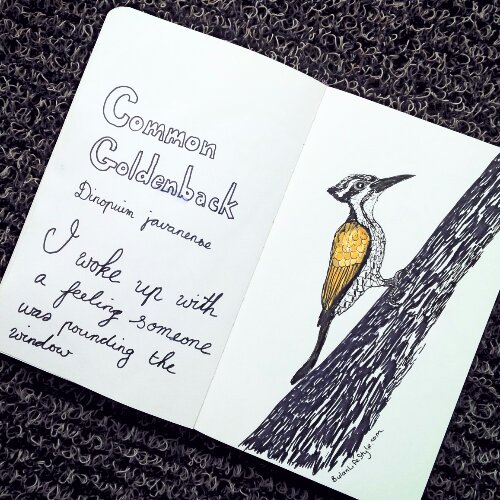 Common
Goldenback
Dinopium javanense
I woke up with
a feeling someone
was pounding the
window
BulanLifeStyle.com